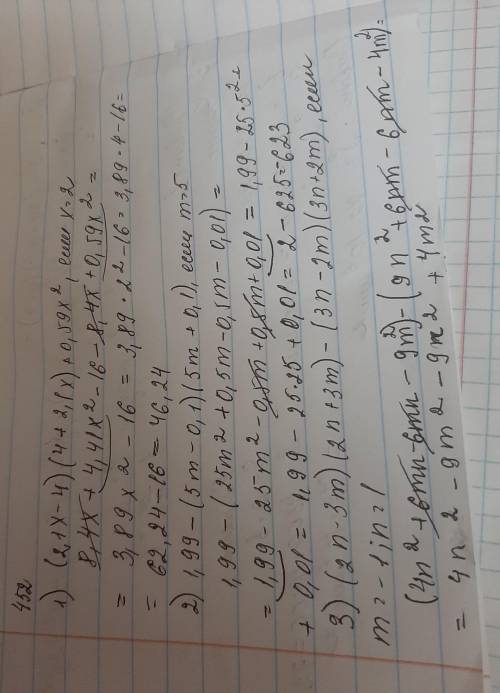 452
1) (2,1x-4)(4+2,1x)+0,59x², если x=2
8,4x+4,41x²-16-8,4x+0,59x²=
= 3,89x²-16 = 3,89·2²-16=3,89·4-16=
= 62,24-16=46,24
2) 1,99-(5m-0,1)(5m+0,1), если m=5
1,99-(25m²+0,5m-0,5m-0,01)=
=1,99-25m²-0,5m+0,5m+0,01=1,99-25·5²+
+0,01=1,99-25·25+0,01=2-625=623
3) (2n-3m)(2n+3m)-(3n-2m)(3n+2m), если
m=-1; n=1
(4n²+6mn-6mn-9m²)-(9n²+6nm-6nm-4m²)=
= 4n²-9m²-9m²+4m²